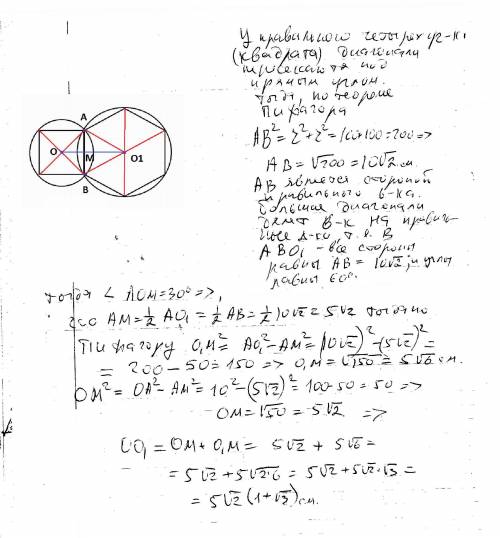 У правильного четырехуг-ка
(квадрата) диагонали
пересекаются под
прямым углом.
Тогда, по теореме
Пифагора
AB²= r²+r²=100+100=200 =>
AB=√200=10√2 см.
AB является стороной
правильного 6-ка.
большие диагонали
делят 6-к на правиль-
ные Δ-ки, т.е. в
ABO₁ - все стороны
равны AB = 10√2, и углы
равны 60°.
A
O
M
O1
B
тогда ∠ AOM=30° =>,
AM=½ AO₁=½ AB=½ 10√2=5√2 тогда по
Пифагору O₁M²=AO₁²-AM²=(10√2)²-(5√2)²=
= 200-50=150 => O₁M=√150=5√6 см.
OM²=OA²-AM²=10²-(5√2)²=100-50=50 =>
OM=√50=5√2 =>
OO₁=OM+O₁M= 5√2+5√6=
=5√2+5√2·6=5√2+5√2·√3=
=5√2(1+√3)см.